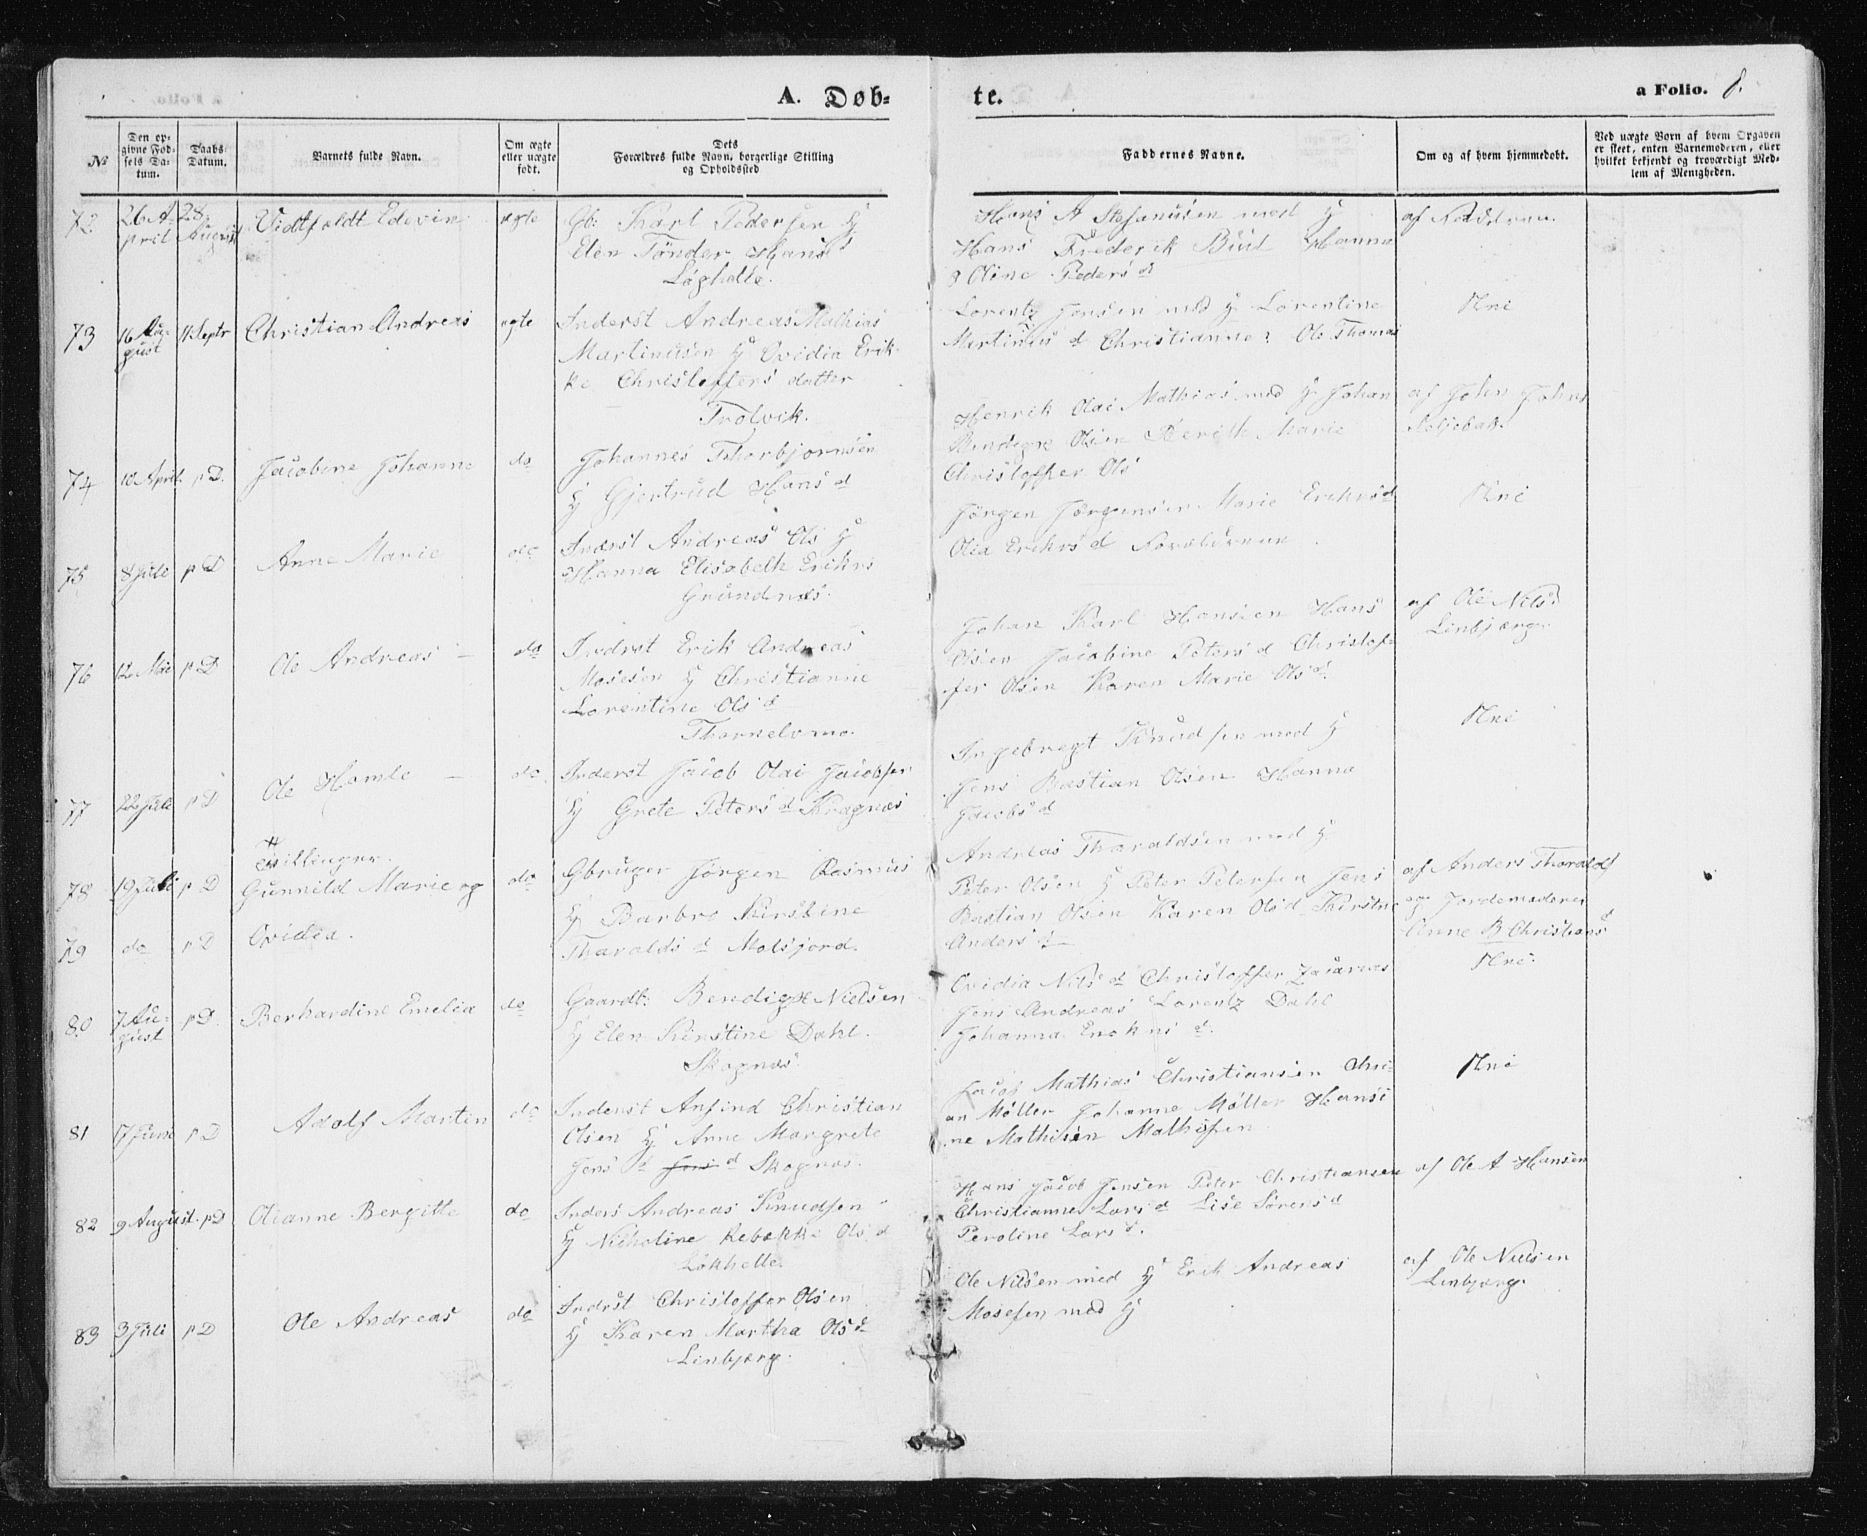 A. Døb-
te.
a Folio. 8.
№
Den op-
givne Fød-
sels Da-
tum.
Daabs-
Datum.
Barnets fulde Navn.
Om ægte
eller uægte
født.
Dets
Forældres fulde Navn, borgerlige Stilling
og Opholdssted
Faddernes Navne.
Om og af hvem hjemmedøbt.
Ved uægte Børn af hvem Opgaven
er skeet, enten Barnemoderen, eller
hvilket bekjendt og troværdigt Med-
lem af Menigheden.
72 26 A-
pril
28
August
Vidtfeldt Edevin
ægte
Gb: Karl Pedersen Hu
Elen Tønder Hans d
Løghelle.
Hans A Stefanusen med H
Hans Frederik Buul Hanna
Oline Peders d
af
73 16 Au-
gust
11 Septr
Christian Andreas
ægte
Inderst Andreas Mathias
Martinusen H Ovidia Erik-
ke Christoffers datter
Trolvik.
Lorentz Jensen med H Lorentine
Martinus d Christianne Ole Thomas
Nei
74 10 April p D.
Jacobine Johanne
do
Johannes Thorbjørnsen
H Gjertrud Hans d
Henrik Olai Mathias med H Johan
Bendigx Olsen Berith Marie
Christoffer Ols
af John Johns
Seljebak
75 8 Juli p D
Anne Marie
do
Inderst Andreas Ols H
Hanna Elisabeth Eriks
Grundnæs.
Jørgen Jørgensen Marie Eriks d
Olia Eriks d Forældrene
Nei
76 12 Mai p D
Ole Andreas
do
Inderst Erik Andreas
Mosesen H Christianne
Lorentine Ols d
Thornelvmo.
Johan Karl Hansen Hans
Olsen Jacobine Peters d Christof-
fer Olsen Karen Marie Ols d
af Ole Nils.
Linbjerg
77 22 Juli p D
Ole Hemle
do
Inderst Jacob Olai Jacobsen
H Grete Peters d Kragnæs
Ingebregt Knudsen med H
Jens Bastian Olsen Hanna
Jacobs d
Nei
Tvillinger.
78 19 Juli p D
Gunnild Marie og
do
Gbruger Jørgen Rasmus
H Barbro Kirstine
Tharalds d Molsjord.
79 do p D
Ovidia.
Andreas Tharaldsen med H
Peter Olsen H Peter Petersen Jens
Bastian Olsen Karen Ols d Kirstne
Anders d
af Anders Tharalds
og Jordemoderen
Anne B Christians d
80 7 Au-
gust
p D.
Berhardine Emelia
do
Gaardb: Bendigx Nielsen
H Elen Kirstine Dahl.
Skognæs
Ovidia Nils d Christoffer Zacarias
Jens Andreas Lorentz Dahl
Johanna Eriks d.
Nei.
81 17 Juni p D
Adolf Martin
do
Inderst Anfind Christian
Olsen H Anne Margrete
Jens d Jens d Skognæs.
Jacob Mathias Christiansen Chri-
an Møller Johanne Møller Hansi
ne Mathisen Mathisen
Nei
82 9 August. p D
Olianne Bergitte
do
Inders Andreas Knudsen
H Nicholine Rebekke Ols d
Løkhelle.
Hans Jacob Jensen Peter Christiansen
Christianne Lars d Lise Sørens d
Peroline Lars d.
af Ole A Hansen
83 3 Juli p D
Ole Andreas
do
Inderst Christoffer Olsen
H Karen Martha Ols d
Linbjerg.
Ole Nilsen med H Erik Andreas
Mosesen med H
af Ole Nielsen
Linbjerg